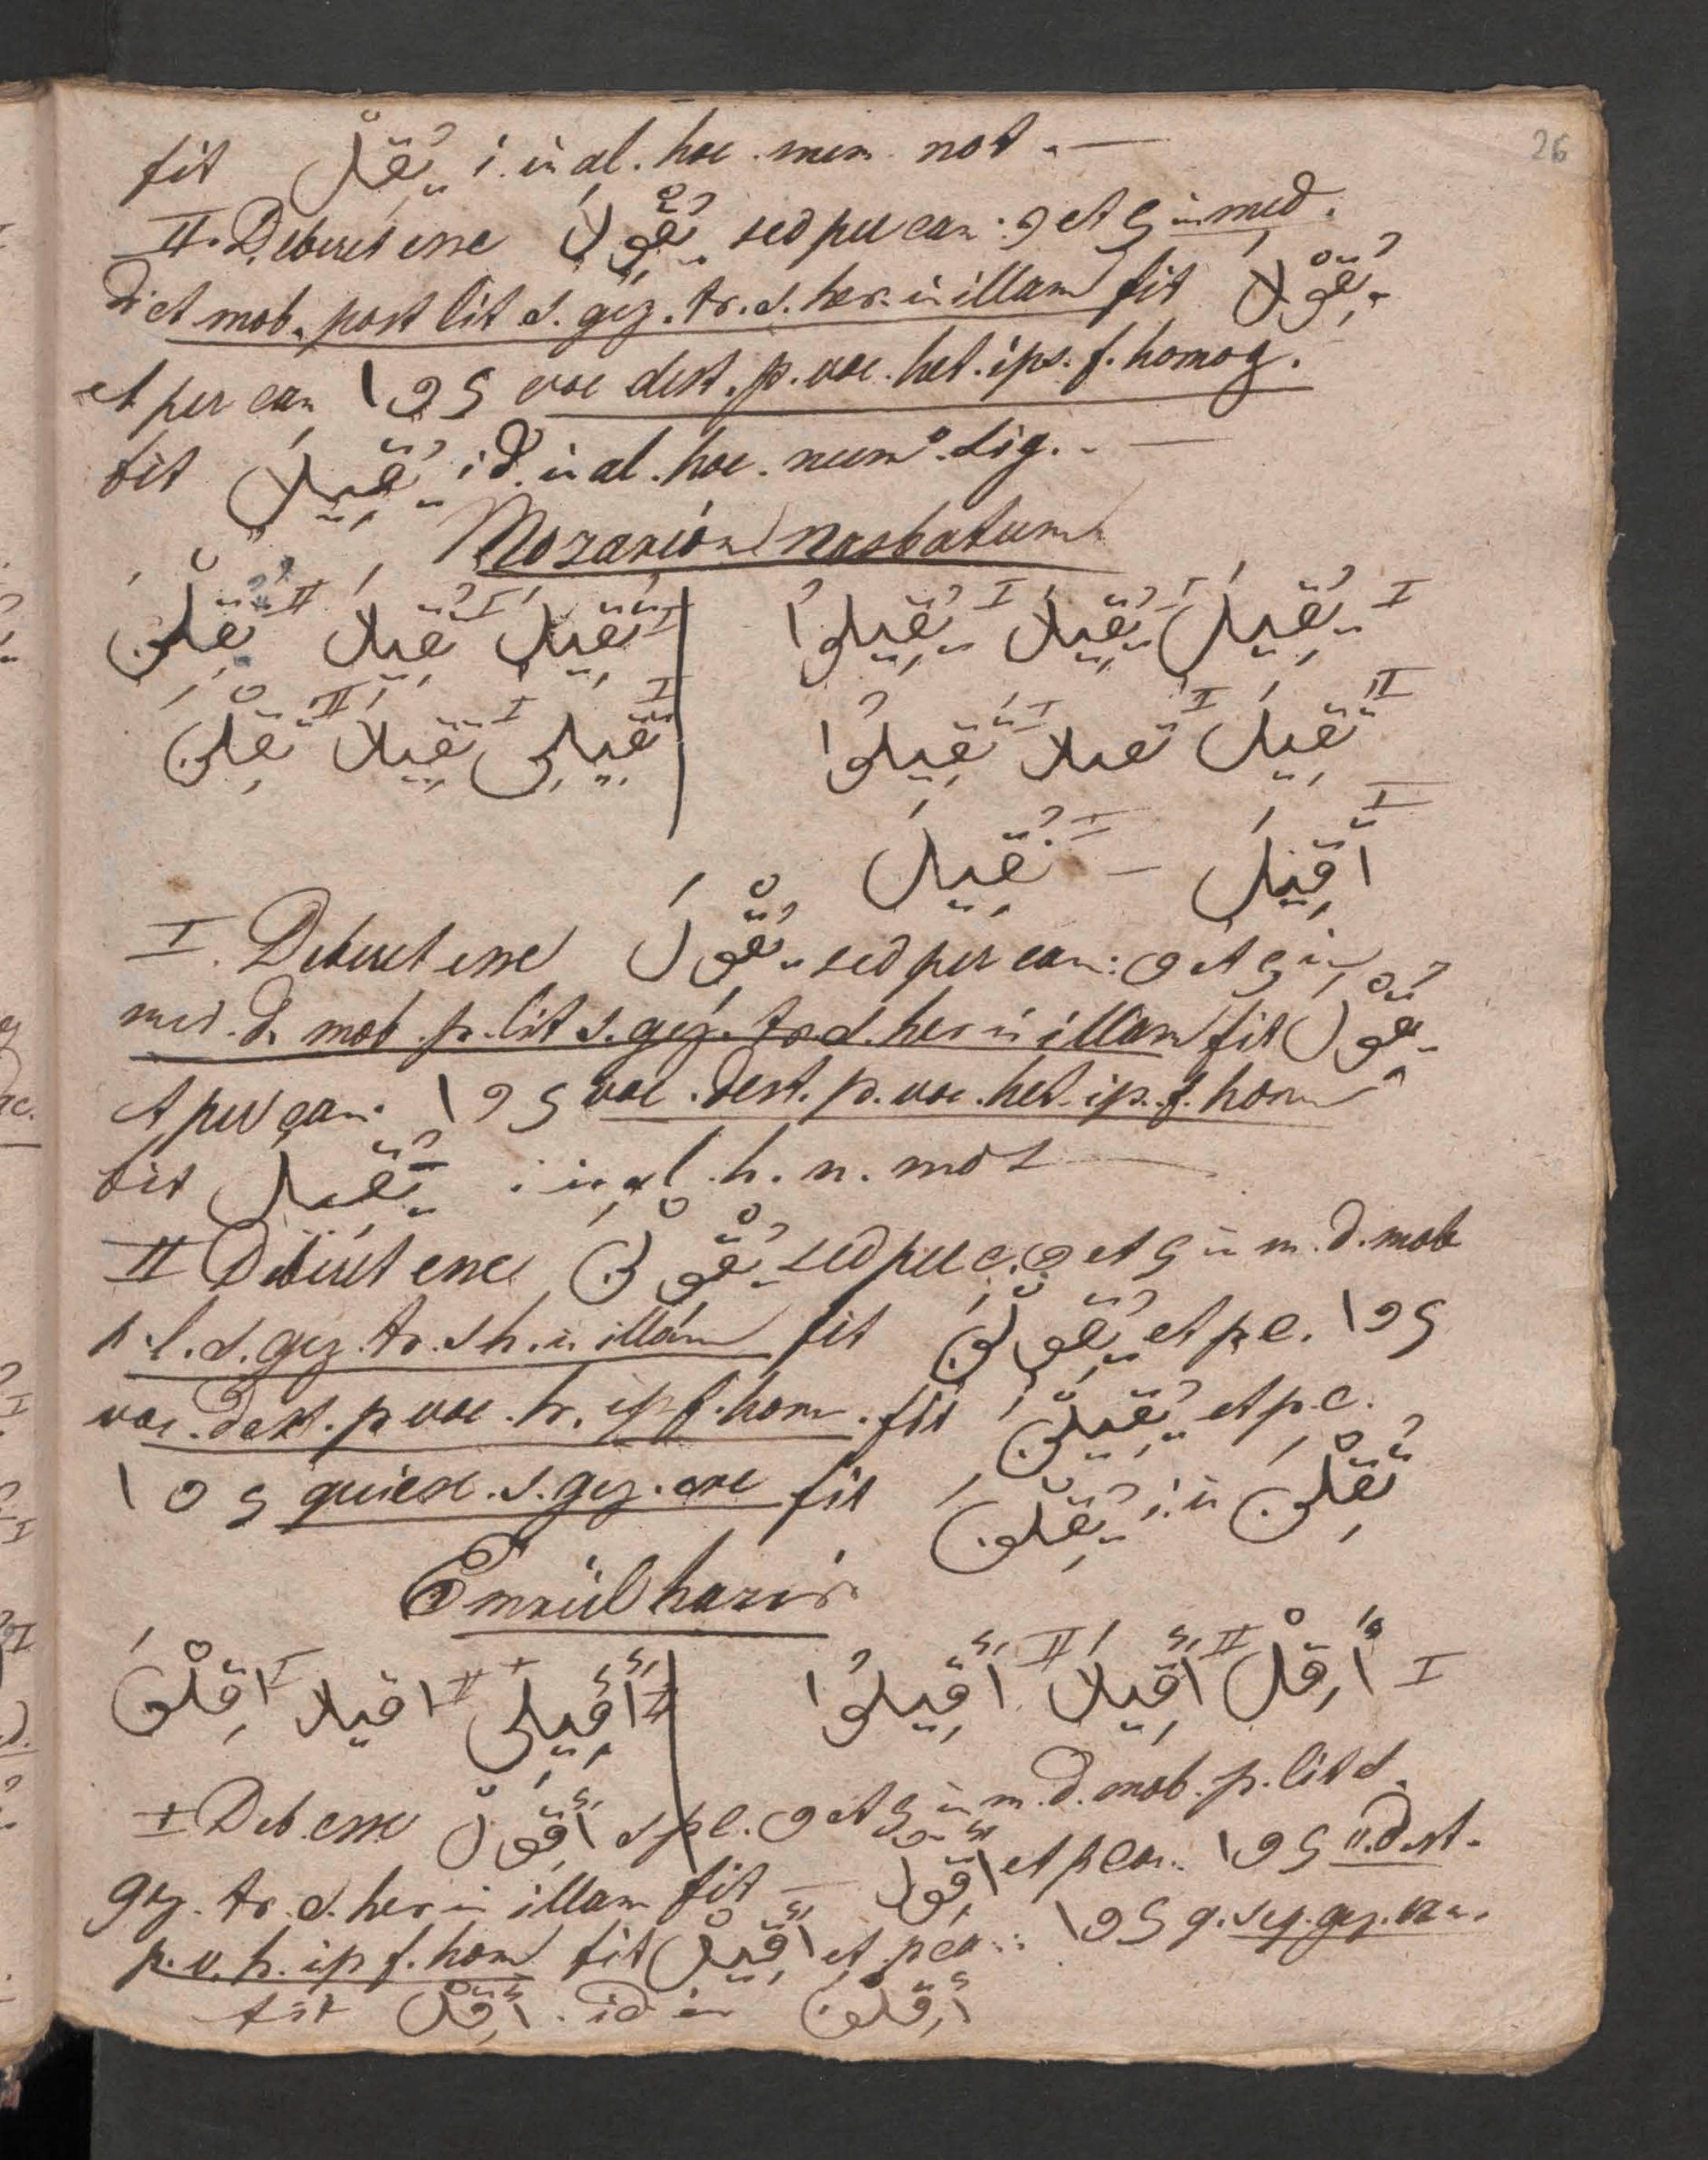 26
fit يُقِلْ i. in al. hoc. num. not. —
II. Deberet esse يُقْوِلَا sed per can: و et ي in med.
dict mob. post lit s. gez. tr. s. her. in illam fit يُقِوْلَا
et per can ا و ي voc dest. p. voc. het. ips. f. homog.
fit يُقِيلَا id. in al. hoc. num° sig. . —
Mozarion nasbatum
I يُقِيلَ يُقِيلَا I يُقِيلُوا I تُقِيلَ I تُقِيلَا I تُقِلْنَ II
II تُقِيلَ I تقيلا I تُقِيلُوا I تُقِيلِى I تُقِيلَا II تُقِلْنَ
I أُقِيلَ — I نُقِيلَ
I. Deberet esse يُقْوِلَ sed per can: و et ي in
med. d. mob. p. lit s. gez. tr. s. her in illam fit يُقِوْلَ
et per can. ا و ي voc. dest. p. voc. het. ip. f. hom
fit يُقِيلَ i in al. h. n. not —
II Deberet esse يُقْوِلْنَ sed per c. و et ي in m. d. mob
p. l. s. gez. tr. s h. in illam fit يُقِوْلْنَ et p c. ا و ي
voc. dest. p voc. h. ip f. hom. fit يُقِيلْنَ et p. c.
ا و ي quiesc. s. gez. fit يُقِلْنَ i. in تُقِلْنَ
Emrül hazir
I أَقِلْ II أَقِيلَا II أَقِيلُوا II أَقِيلِى II اقيلا I أَقِلْنَ
I Deb. esse أَقْوِلْ s p c. و et ي in m. d. mob. p. lit s.
gez. tr. s. her in illam fit — أَقِوْلْ et p can. ا و ي v. dest.
p. v. h. ip f. hom fit أَقِيلْ et p can: ا و ي q. seq. gez.
fit أَقِلْ . id in أَقِلْنَ